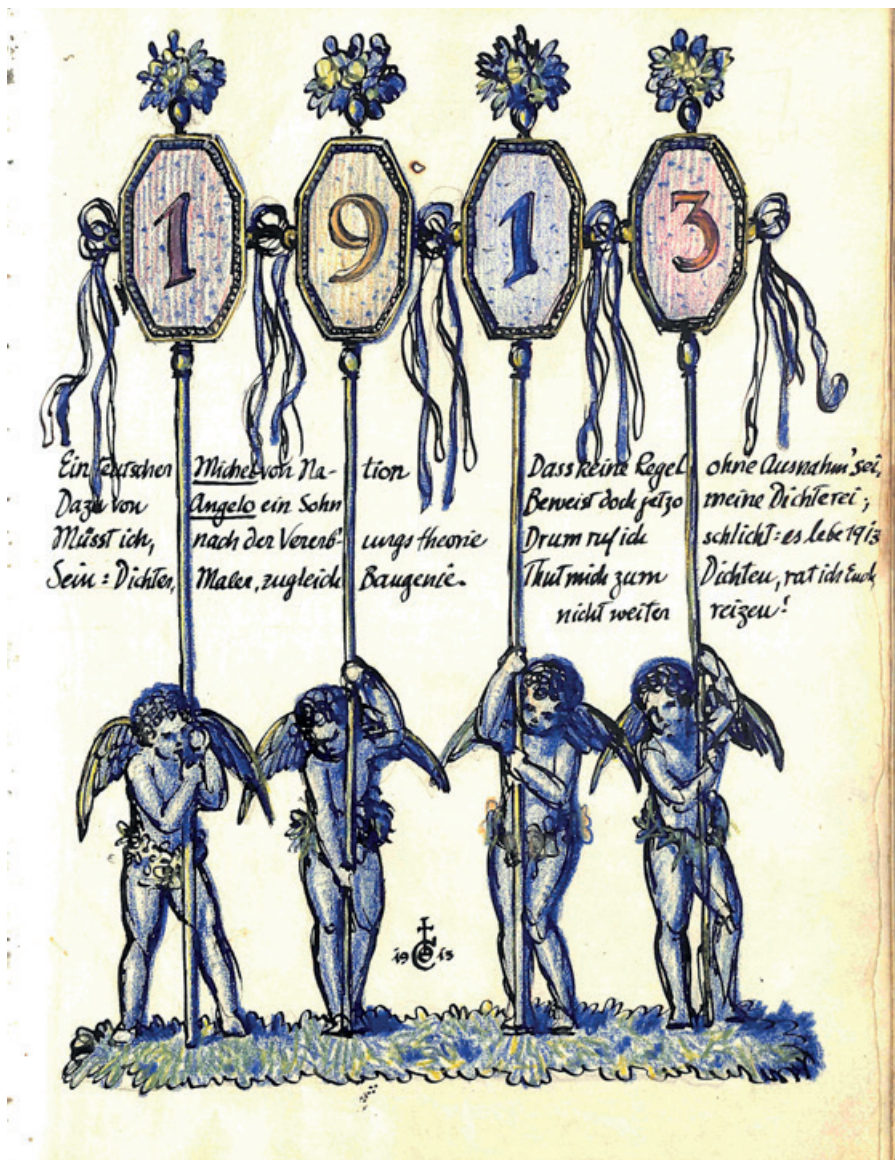 1 9 1 3
Ein teutscher Michel von Na- tion
Dazu von Angelo ein Sohn
Müsst ich, nach der Vererb- ungstheorie
Sein: Dichter, Maler, zugleich Baugenie.
Dass keine Regel ohne Ausnahm' sei,
Beweist doch jetzo meine Dichterei;
Drum ruf ich schlicht: es lebe 1913
Thut mich zum Dichten, rat ich Euch,
nicht weiter reizen!
19 13